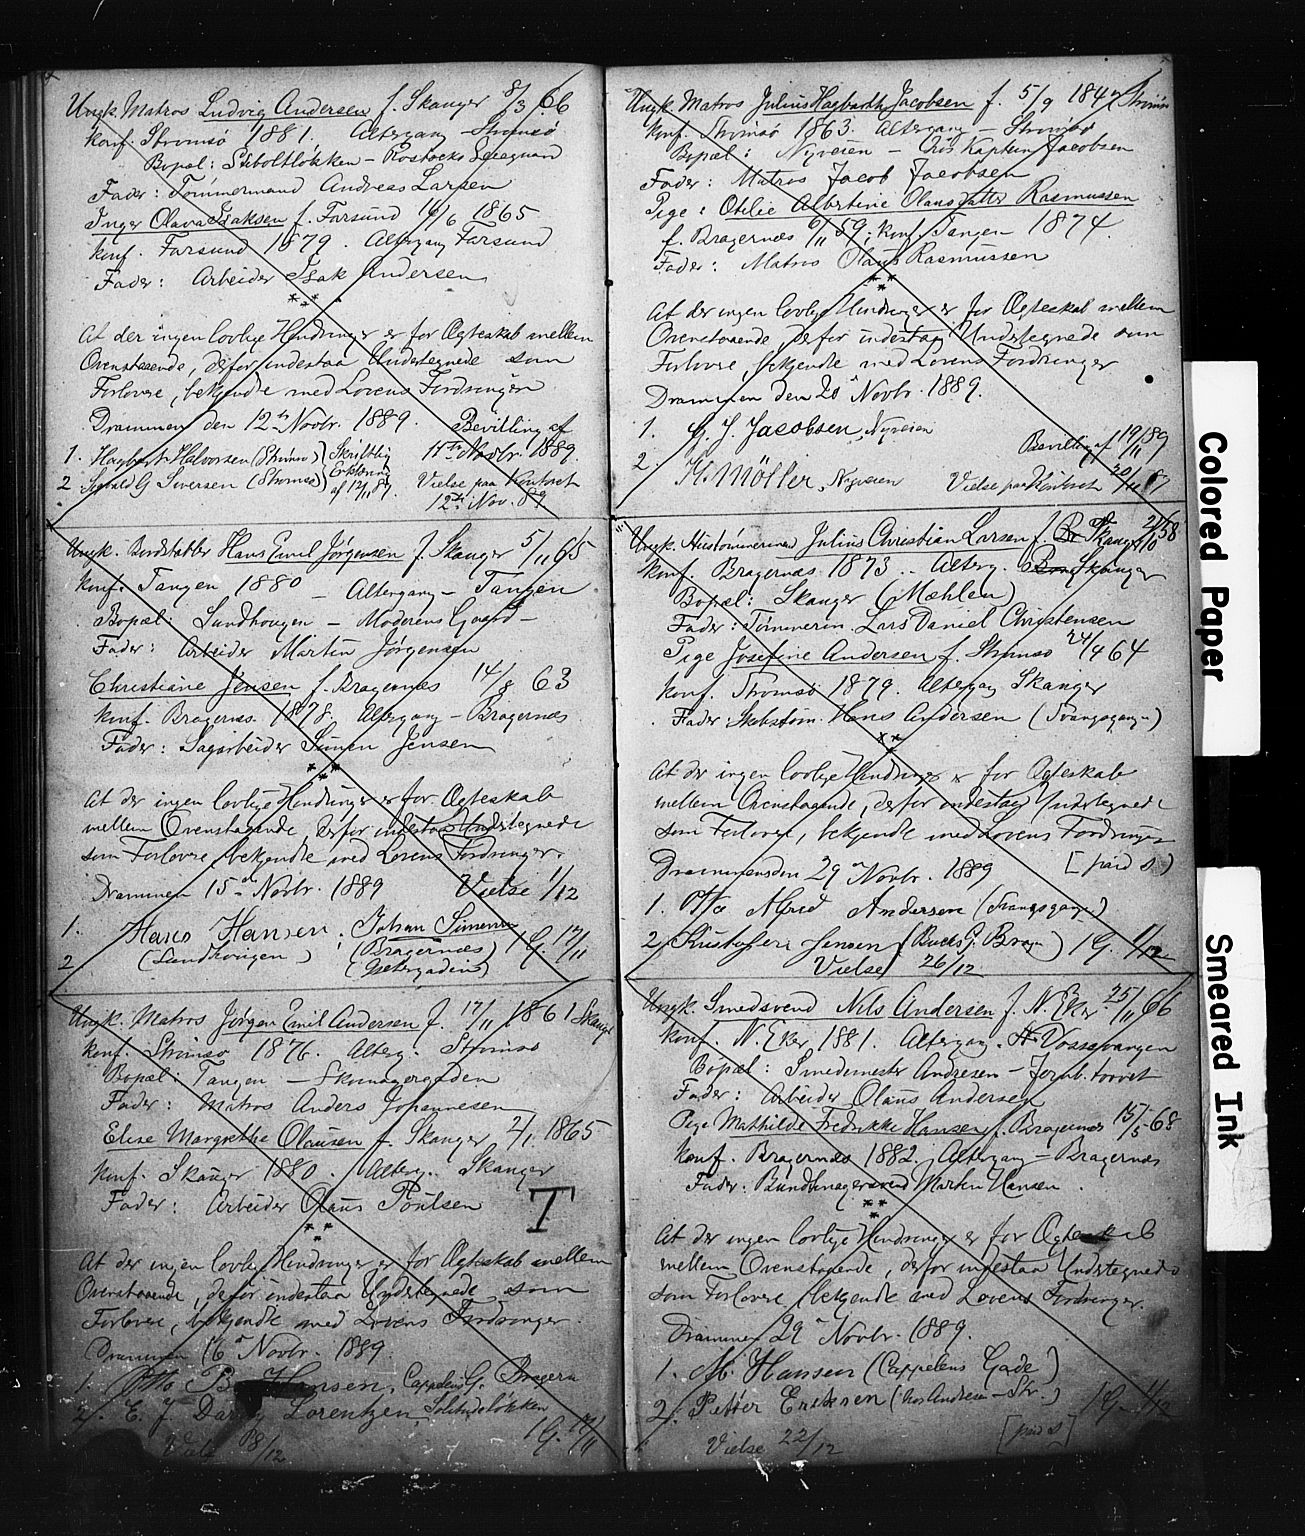 Ungk. Matros Ludvig Andersen f. Skanger 8/3 66
konf. Strømsø 1881. Altergang Strømsø
Bopæl: Stiboltløkken –
Fader: Tømmermand Andreas Larsen
Inger Olava Isaksen f. Farsund 1865
konf. Farsund 1879. Altergang Farsund
Fader: Arbeider Isak Andersen
At der ingen lovlige Hindringer er for Ægteskab mellem
Ovenstaaende, derfor indestaa Undertegnede som
Forlovere, bekjendte med Lovens Fordringer
Drammen den 12te Novbr. 1889. Bevilling af
1. Hagbart Halvorsen (Strømsø) Skriftlig 11te Novbr. 1889.
2 Sigvald G Siversen (Strømsø) Erklæring af 12/11 89. Vielse paa Kontoret
12te Nov. 89
Ungk. Bordstabler Hans Emil Jørgensen f. Skanger 5/11 65
konf. Tangen 1880 – Altergang – Tangen
Bopæl: Sundhougen – Moderens Gaard –
Fader: Arbeider Martin Jørgensen
Christiane Jensen f. Bragernæs 14/8 63
konf. Bragernæs 1878. Altergang – Bragernæs
Fader: Sagarbeider Simen Jensen
At der ingen lovlige Hindringer er for Ægteskab
mellem Ovenstaaende, derfor indestaa Undertegnede
som Forlovere, bekjendte med Lovens Fordringer.
Drammen 15de Novbr. 1889 Vielse 1/12
1. Hans Hansen. Johan Simensen
2 (Sundhougen) (Bragernæs) 1 G. 17/11
Ungk. Matros Jørgen Emil Andersen f. 17/11 1861 Skanger
konf. Strømsø 1876. Alterg. Strømsø
Bopæl: Tangen – Skomagergaden
Fader: Matros Anders Johannesen
Elise Margrethe Olausen f. Skanger 2/1 1865
konf. Skanger 1880. Alterg. Skanger
Fader: Arbeider Olaus Poulsen
T
At der ingen lovlige Hindringer er for Ægteskab mellem
Ovenstaaende, derfor indestaa Undertegnede som
Forlovere, bekjendte med Lovens Fordringer.
Drammen 16 Novbr. 1889.
1. Otto B. Hansen, Cappelens G. Bragern
2. E. J. Lorentzen
1 G. 17/11
Vielse 18/12
Ungk. Matros Julius Hagbarth Jacobsen f. 5/9 1847 Strømsø
konf. Strømsø 1863. Altergang – Strømsø
Bopæl: Nyveien – Kaptein Jacobsen
Fader: Matros Jacob Jacobsen
Pige: Otilie Albertine Olausdatter Rasmussen
f. Bragernæs 59; konf. Tangen 1874
Fader: Matros Olaus Rasmussen
At der ingen lovlige Hindringer er for Ægteskab mellem
Ovenstaaende, derfor indestaa Undertegnede som
Forlovere, bekjendte med Lovens Fordringer
Drammen den 20 Novbr. 1889.
1. G. J. Jacobsen, Nyveien Bevilling af 19/11 89
2. Møller, Nyveien Vielse paa Kontoret 20/11
Ungk. Hustømmermd Julius Christian Larsen f. Skanger 58
konf. Bragernæs 1873. Alterg. Skanger
Bopæl: Skanger (Mæhlen)
Fader: Tømmerm. Lars Daniel Christensen
Pige Josefine Andersen f. Strømsø 24/4 64
konf. Strømsø 1879. Altergang Skanger
Fader: Skibstøm. Hans Andersen (Svangsgangen)
At der ingen lovlige Hindringer er for Ægteskab
mellem Ovenstaaende, derfor indestaa Undertegnede
som Forlovere, bekjendte med Lovens Fordringer
Drammen den 29 Novbr. 1889
1. Alfred Andersen (Svangsgangen)
2. Kristoffer Jensen 1 G. 1/12
Vielse 26/12
Ungk. Smedsvend Nils Andersen f. N. Eker 25/11 66
konf. N. Eker 1881. Altergang. Vossevangen
Bopæl: Smedemester Andresen – Jernb. torvet
Fader: Arbeider Olaus Andersen
Pige Mathilde Fredrikke Hansen f. Bragernæs 15/5 68
konf. Bragernæs 1882. Altergang – Bragernæs
Fader: Bundtmagersvend Martin Hansen.
At der ingen lovlige Hindringer er for Ægteskab
mellem Ovenstaaende, derfor indestaa Undertegnede
som Forlovere, bekjendte med Lovens Fordringer.
Drammen 29 Novbr. 1889.
1. M. Hansen (Cappelens Gade)
2. Petter Eriksen 1 G. 1/12
Vielse 22/12
Colored Paper
Smeared Ink